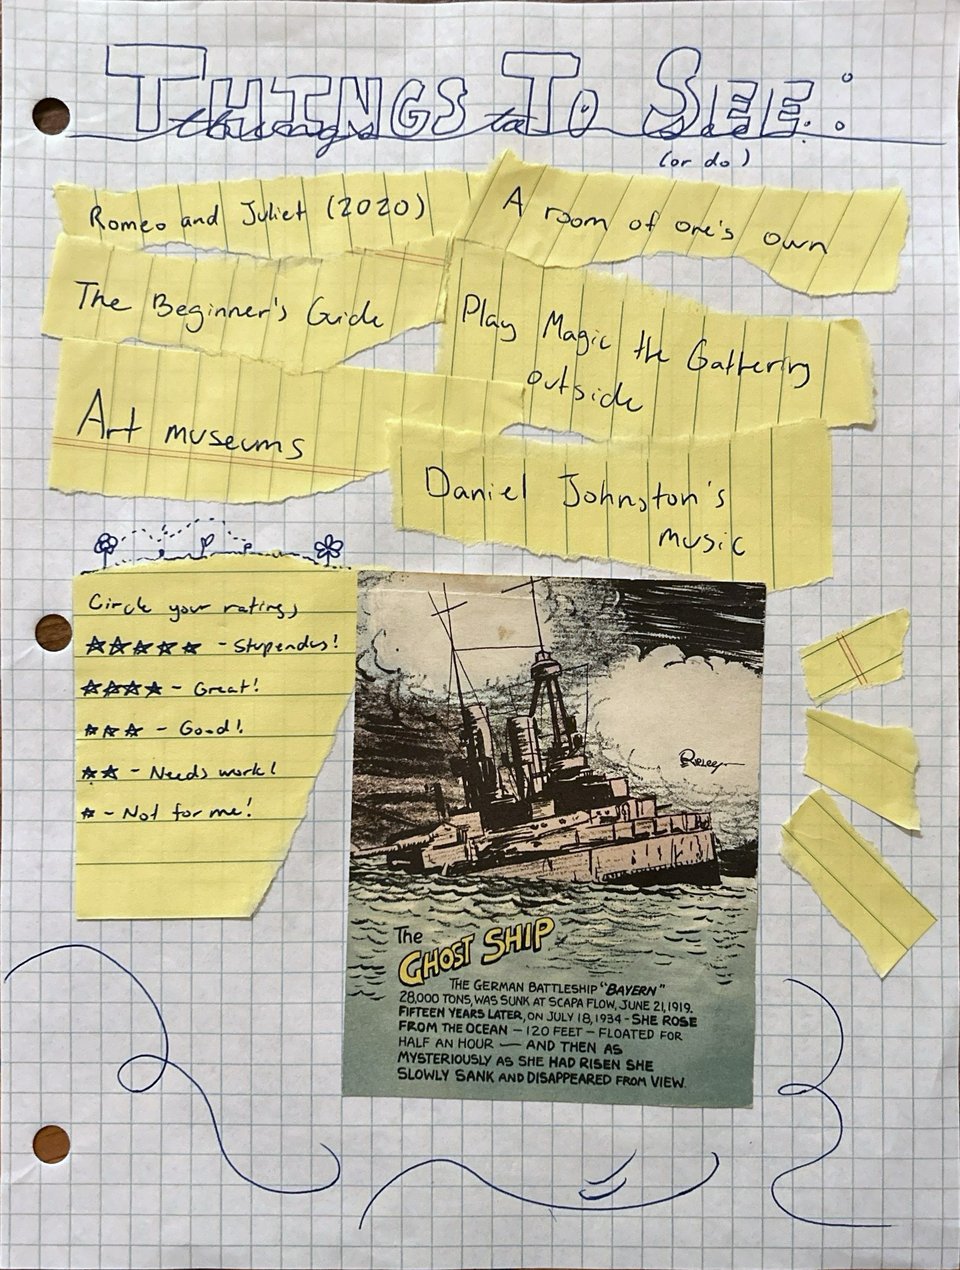 THINGS TO SEE:
things to see:
(or do)
Romeo and Juliet (2020)
A room of one's own
The Beginner's Guide
Play Magic the Gathering
outside
Art museums
Daniel Johnston's
music
Circle your rating;
★★★★★ - Stupendus!
★★★★ - Great!
★★★ - Good!
★★ - Needs work!
★ - Not for me!
Ripley
The
GHOST SHIP
THE GERMAN BATTLESHIP "BAYERN"
28,000 TONS, WAS SUNK AT SCAPA FLOW, JUNE 21, 1919.
FIFTEEN YEARS LATER, ON JULY 18, 1934 - SHE ROSE
FROM THE OCEAN - 120 FEET - FLOATED FOR
HALF AN HOUR — AND THEN AS
MYSTERIOUSLY AS SHE HAD RISEN SHE
SLOWLY SANK AND DISAPPEARED FROM VIEW.